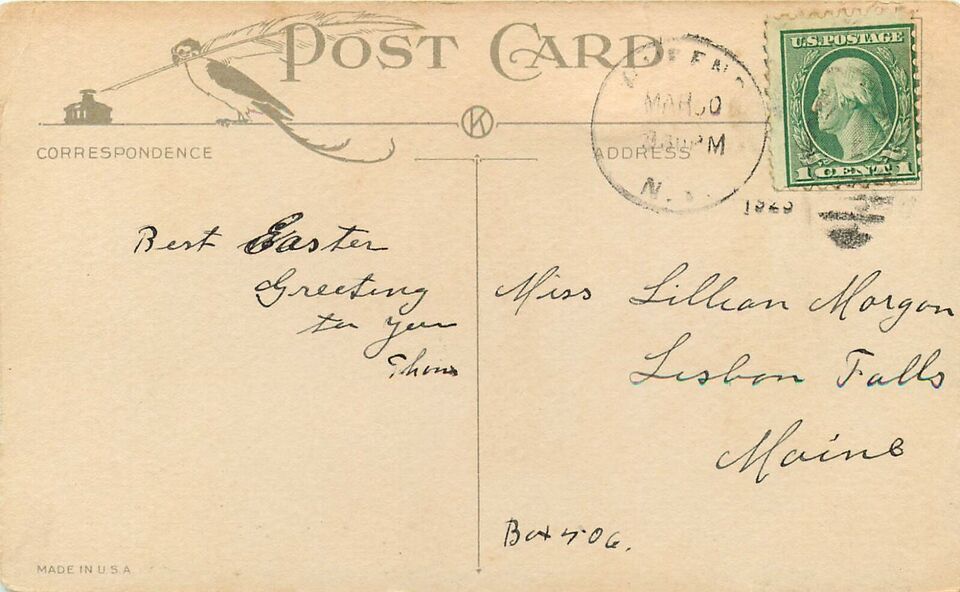 POST CARD
K
CORRESPONDENCE
ADDRESS
MAR 30
PM
N.Y.
U.S. POSTAGE
1 CENT 1
Best Easter
Greeting
to you
Miss Lillian Morgan
Lisbon Falls
Maine
Box 406.
MADE IN U.S.A